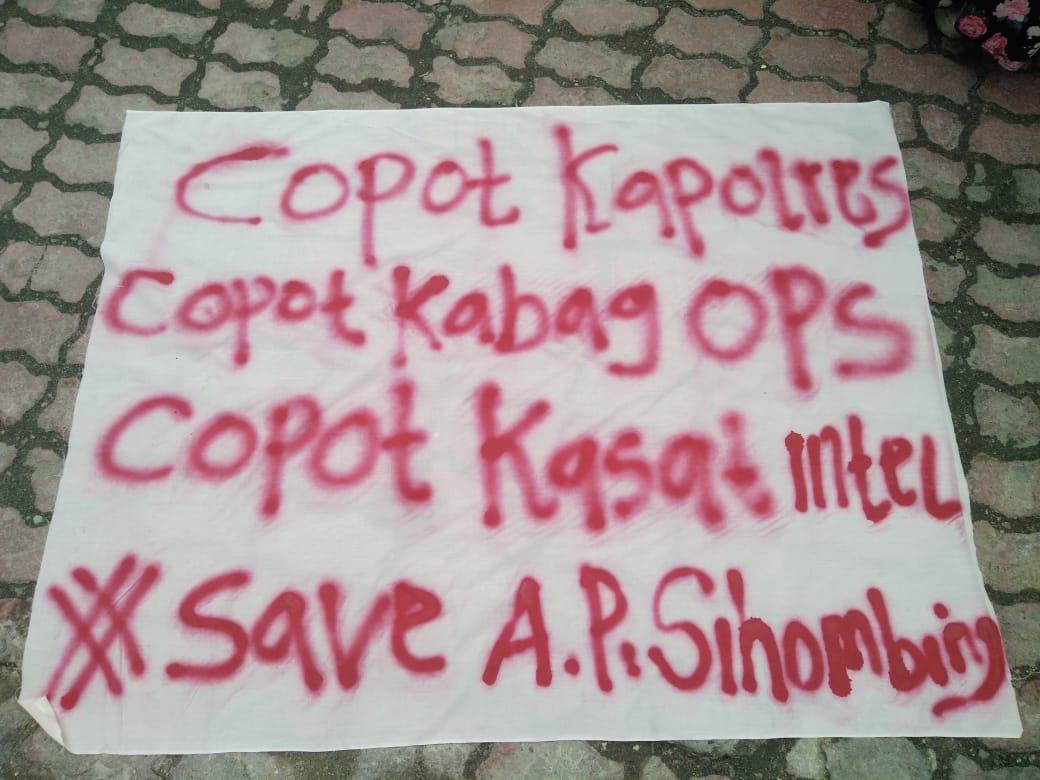 Copot Kapolres
Copot Kabag OPS
Copot Kasat intel
# Save A.P. Sihombing